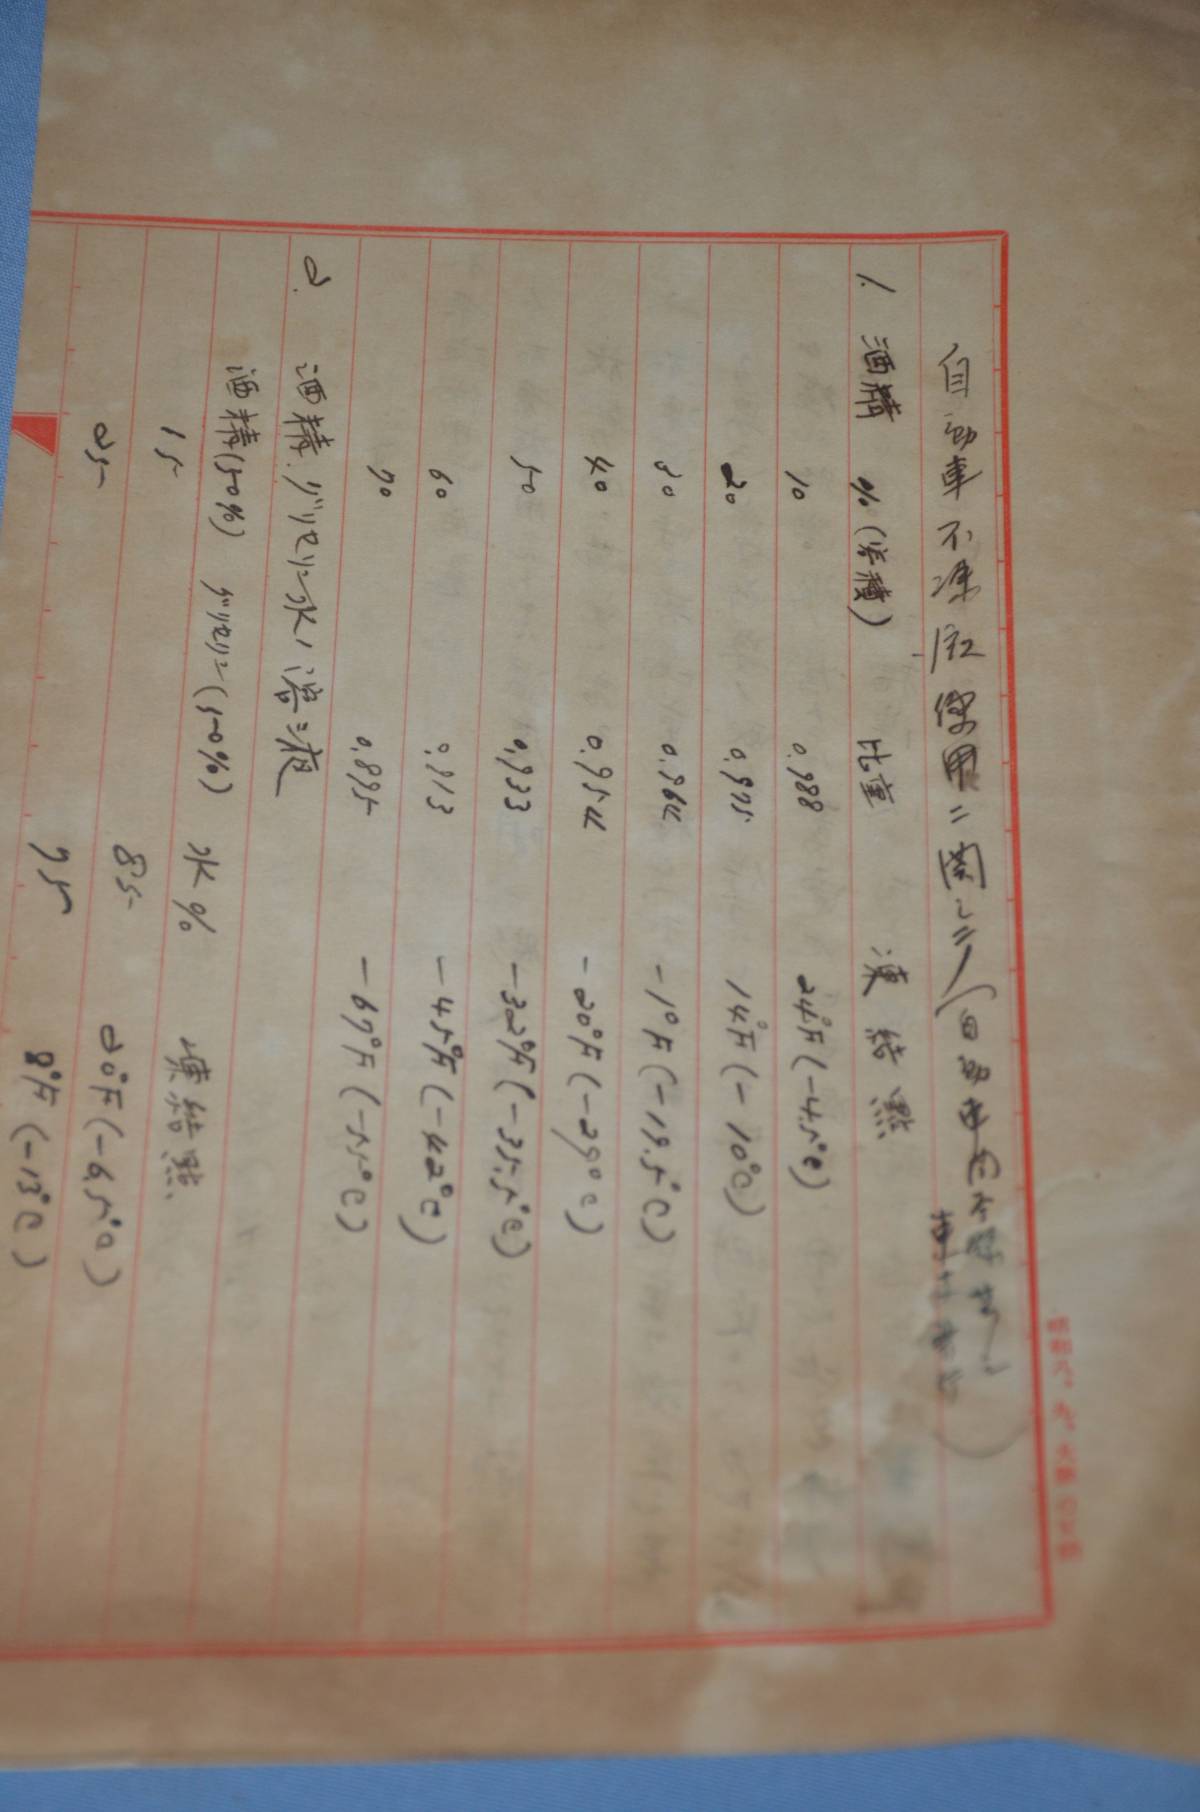 自動車不凍液使用ニ関シテ(自動車
1. 酒精 %(容積) 比重 凍結點
10 0.988 24°F(-4.5°C)
20 0.975 14°F(-10°C)
30 0.964 -1°F(-19.5°C)
40 0.954 -20°F(-29°C)
50 0.933 -32°F(-35.5°C)
60 0.913 -45°F(-42°C)
70 0.895 -69°F(-55°C)
2. 酒精.グリセリン水ノ溶液
酒精(50%) グリセリン(50%) 水% 凍結點
15 85 20°F(-6.5°C)
25 75 8°F(-13°C)